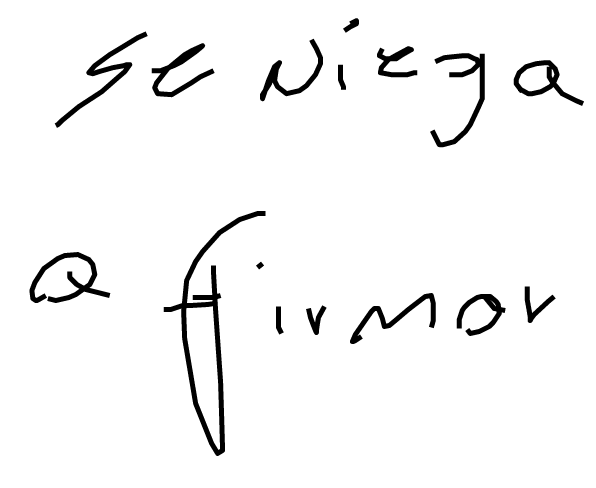 se niega
a firmar